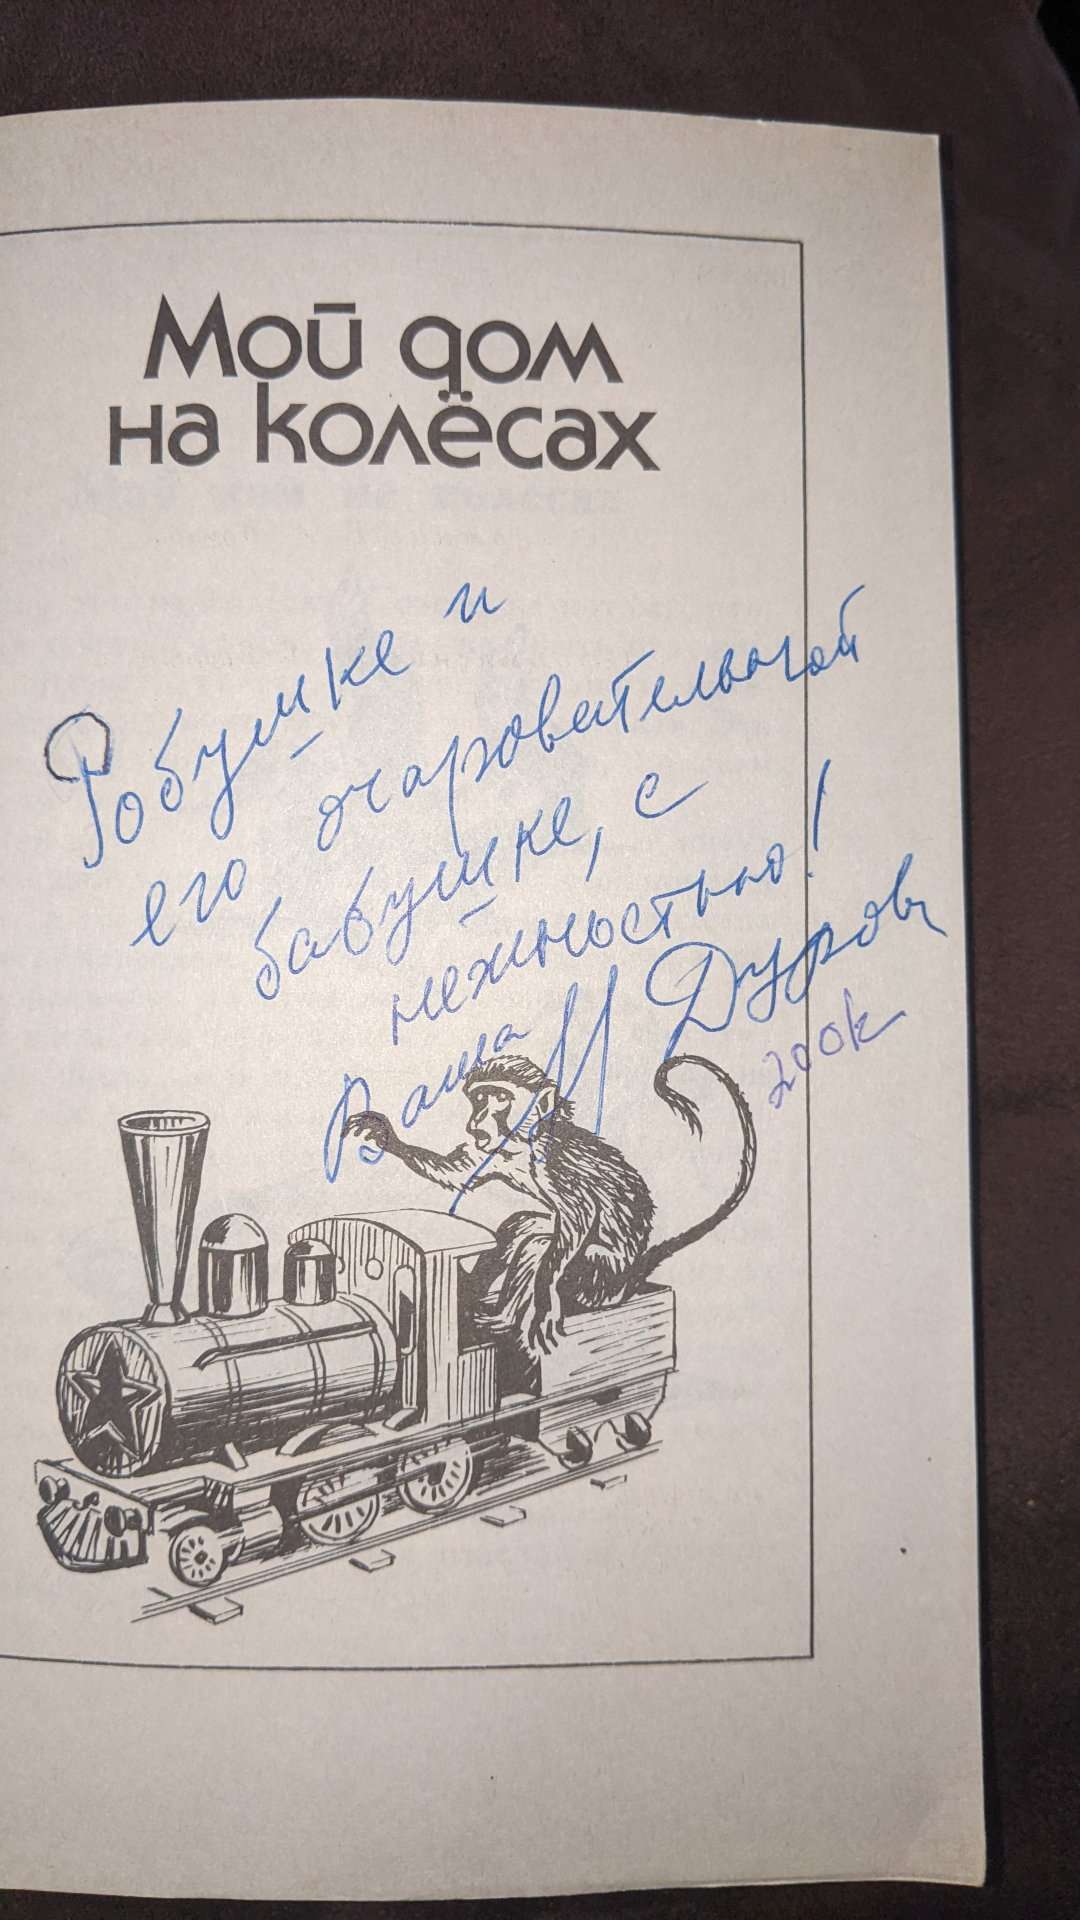 Мой дом
на колёсах
Робушке и
его очаровательной
бабушке, с
нежностью!
Ваша Н Дурова
200